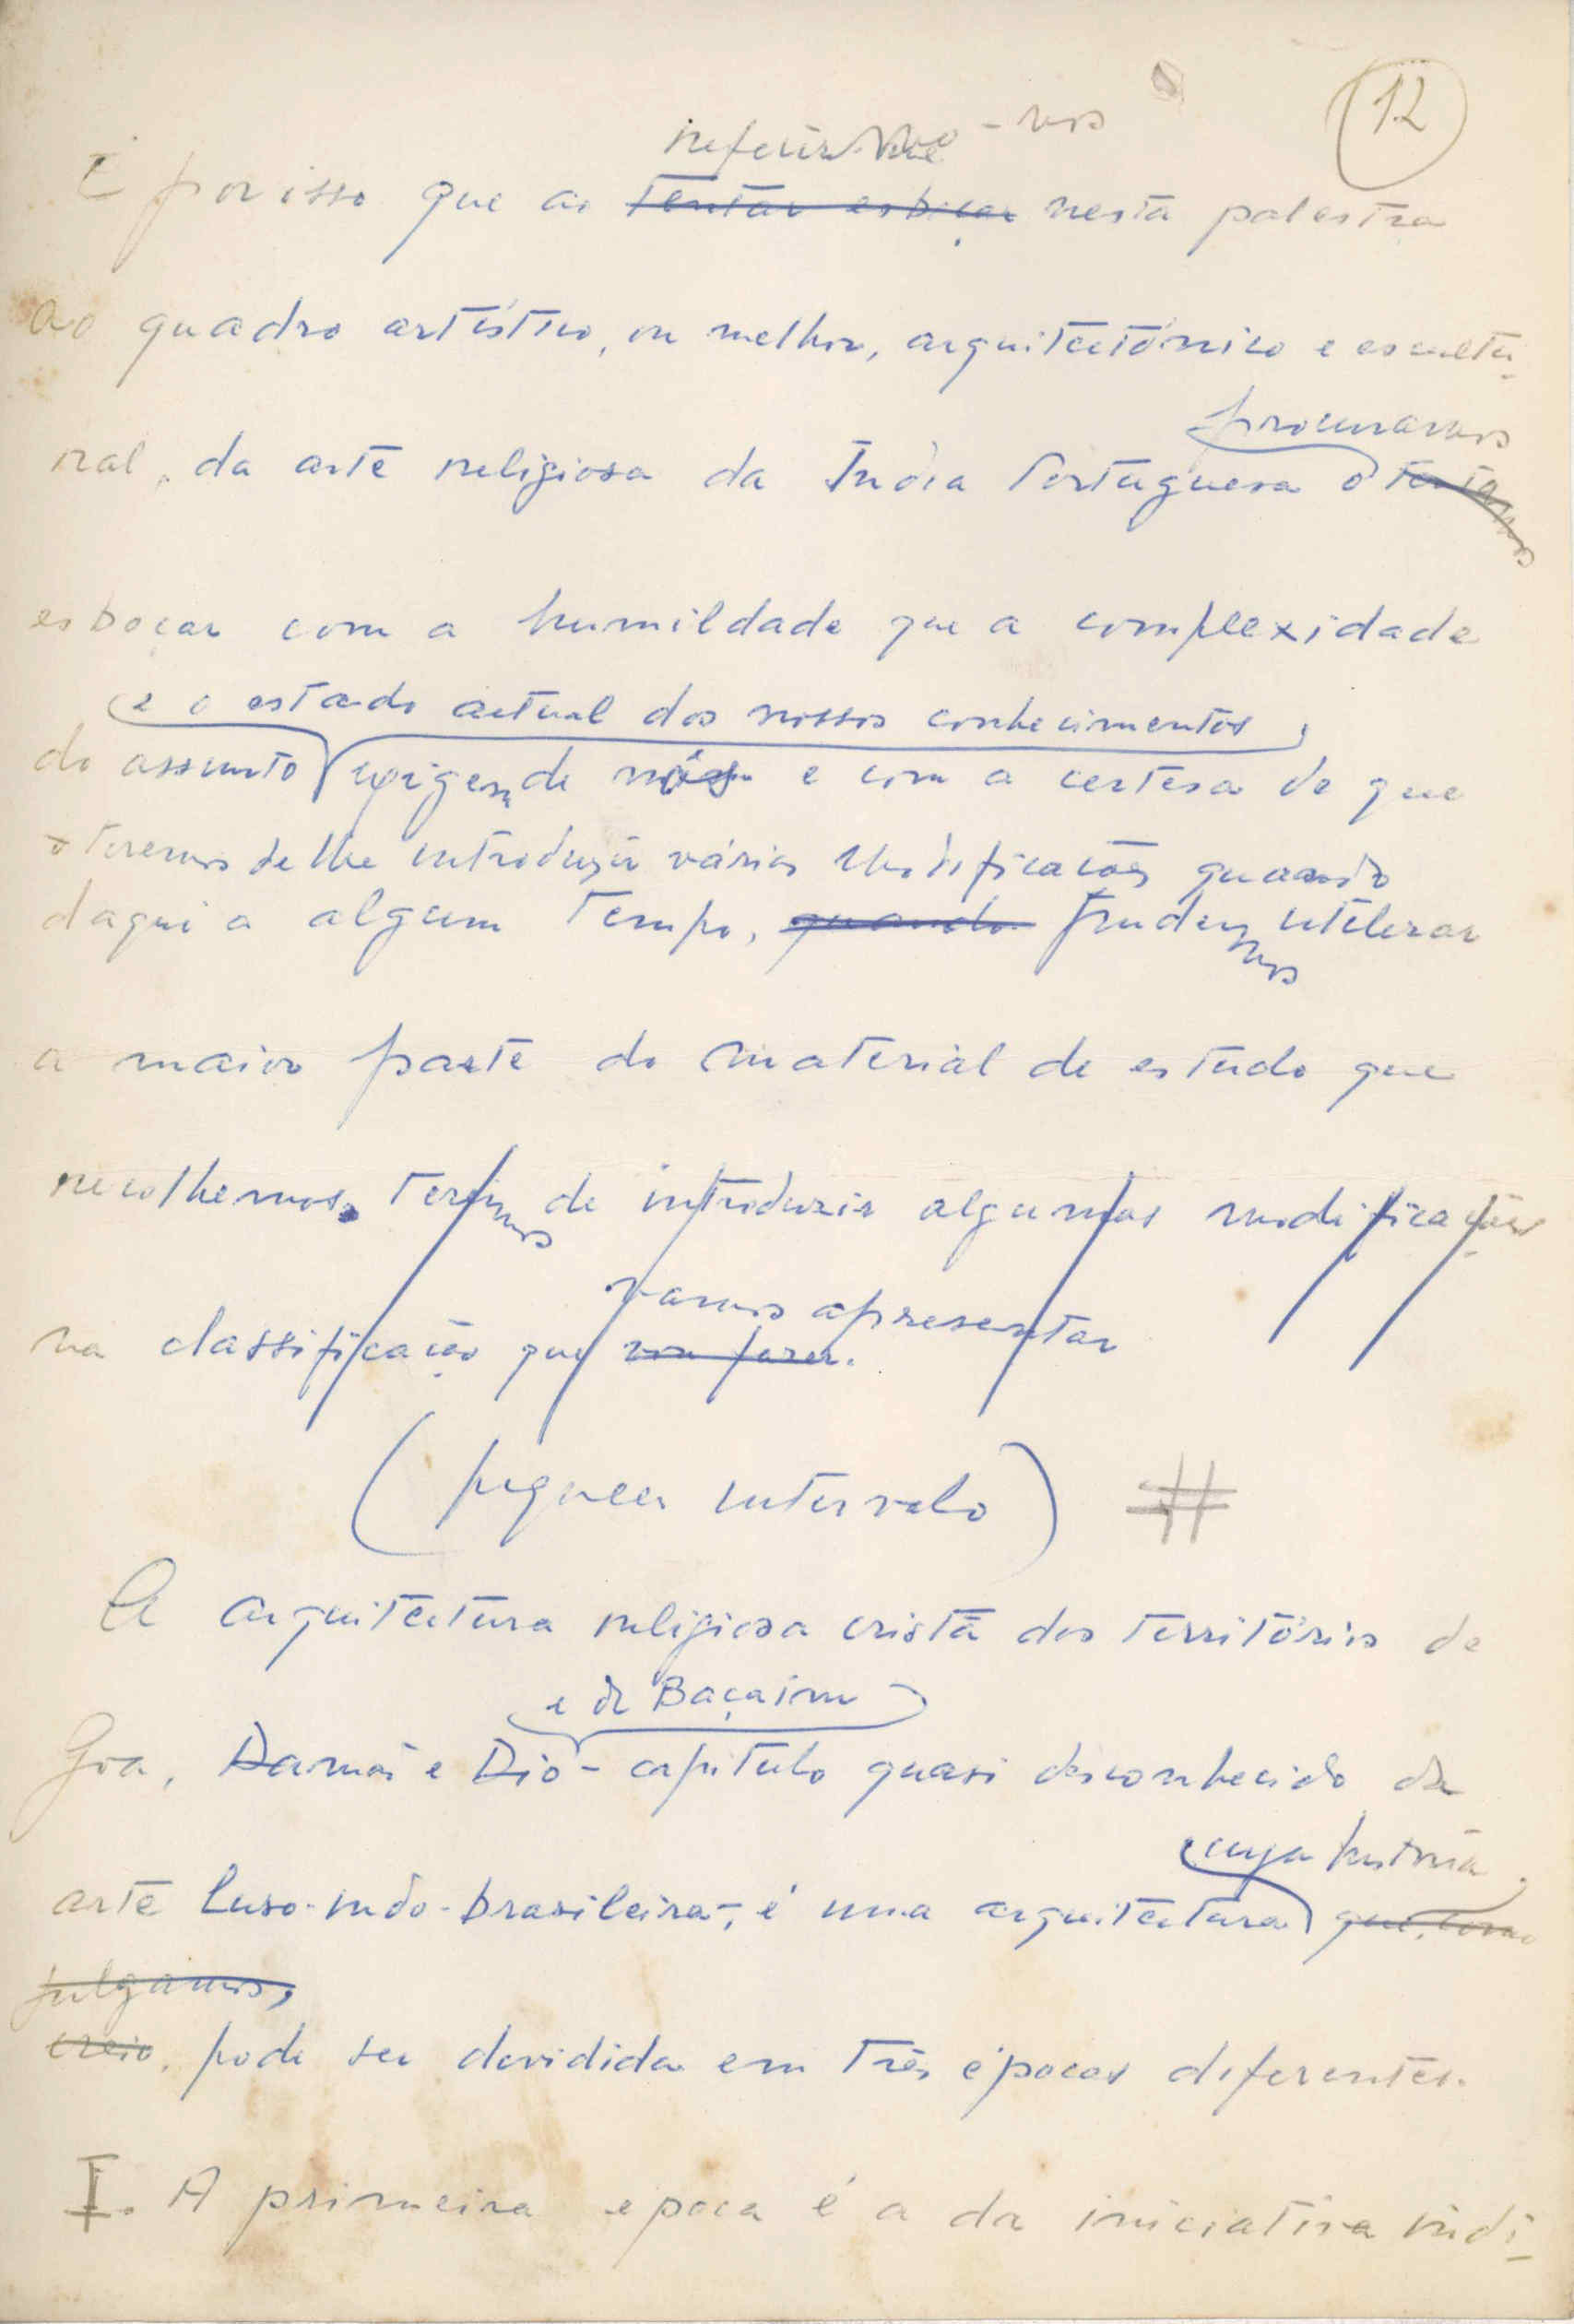 12
referir-me -nos
E por isso que ao tentar esboçar nesta palestra
ao quadro artístico, ou melhor, arquitectónico e escultu-
procuramos
ral, da arte religiosa da India Portuguesa o tentamos
esboçar com a humildade que a complexidade
e o estado actual dos nossos conhecimentos
do assunto exigem de nós e com a certesa de que
teremos de lhe introduzir várias modificações quando
daqui a algum tempo, quando pudermos utilizar
a maior parte do material de estudo que
recolhemos. Teremos de introduzir algumas modificações
vamos apresentar
na classificação que vou fazer.
(pequeno intervalo) #
A arquitectura religiosa cristã dos territórios de
e de Baçaim
Goa, Damão e Dio - capitulo quasi desconhecido da
cuja história,
arte luso-indo-brasileira -, é uma arquitectura que, como
julgamos,
creio, pode ser devidida em três épocas diferentes.
I. A primeira epoca é a da iniciativa indi-